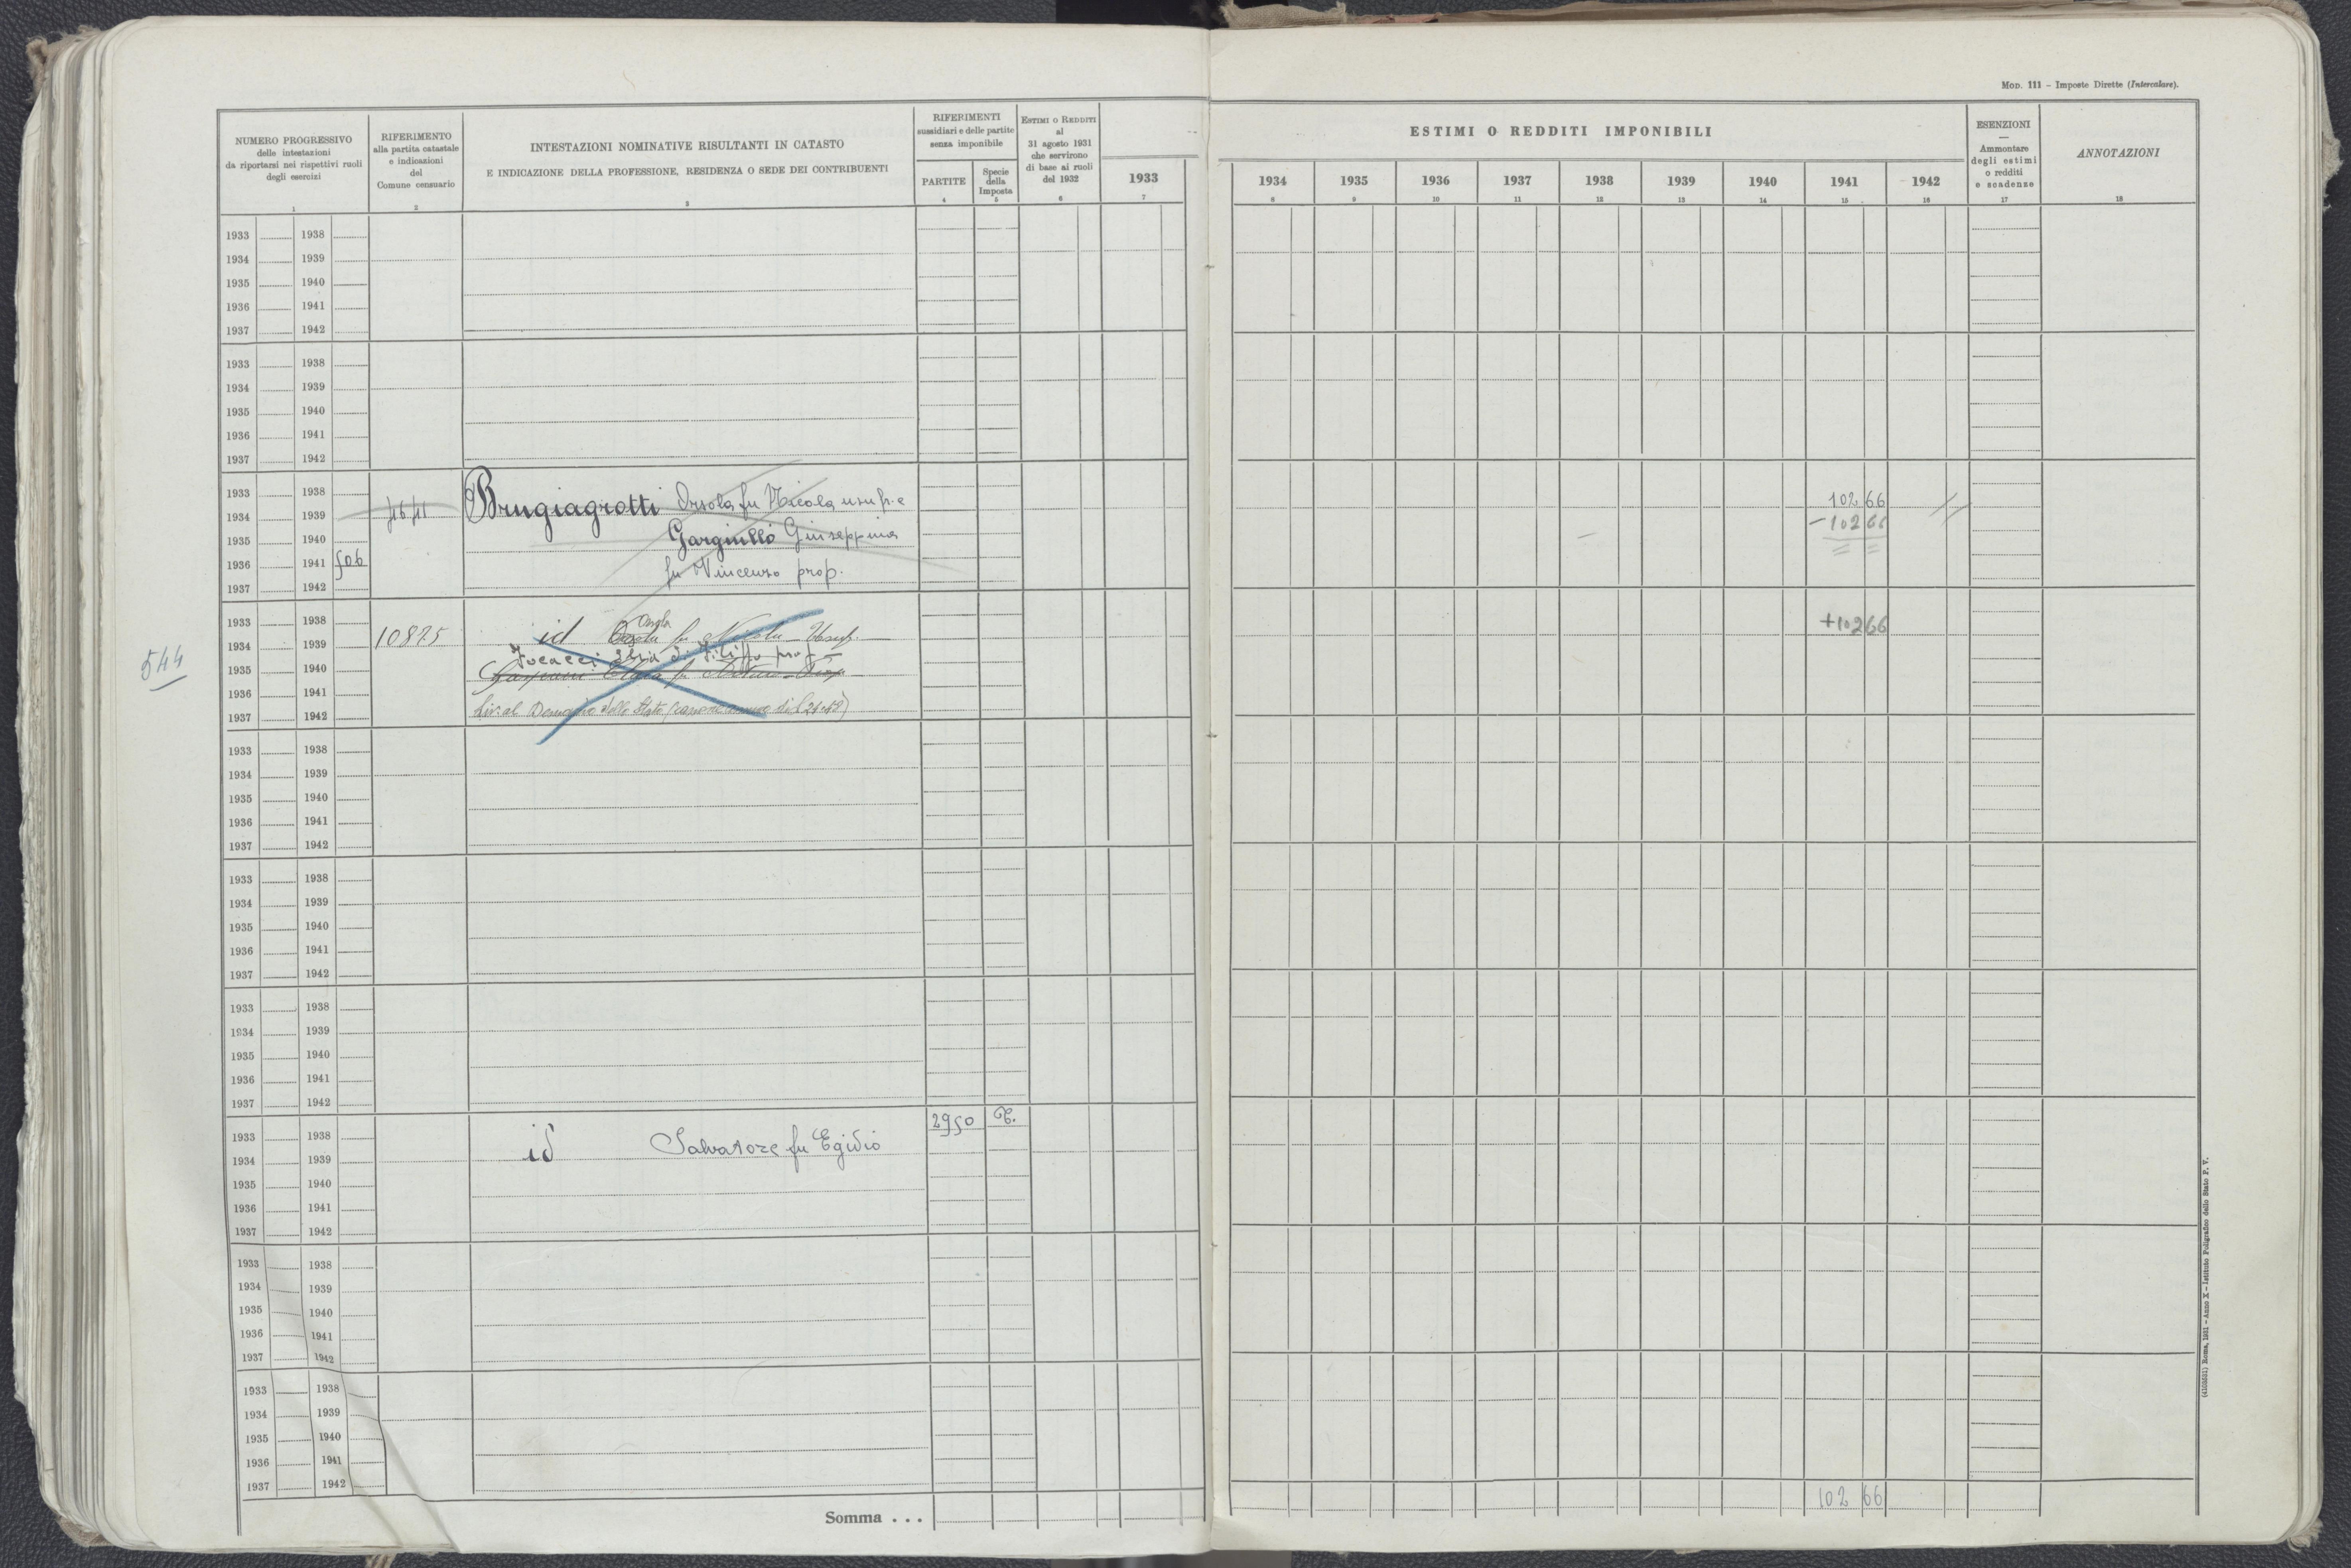 MOD. 111 – Imposte Dirette (Intercalare).
NUMERO PROGRESSIVO
delle intestazioni
da riportarsi nei rispettivi ruoli
degli esercizi
1
RIFERIMENTO
alla partita catastale
e indicazioni
del
Comune censuario
2
INTESTAZIONI NOMINATIVE RISULTANTI IN CATASTO
E INDICAZIONE DELLA PROFESSIONE, RESIDENZA O SEDE DEI CONTRIBUENTI
3
RIFERIMENTI
sussidiari e delle partite
senza imponibile
PARTITE
4
Specie
della
Imposta
5
ESTIMI O REDDITI
al
31 agosto 1931
che servirono
di base ai ruoli
del 1932
6
1933
7
ESTIMI O REDDITI IMPONIBILI
1934 1935 1936 1937 1938 1939 1940 1941 1942
8 9 10 11 12 13 14 15 16
ESENZIONI
—
Ammontare
degli estimi
o redditi
e scadenze
17
ANNOTAZIONI
18
1933 1938
1934 1939
1935 1940
1936 1941
1937 1942
1933 1938
1934 1939
1935 1940
1936 1941
1937 1942
1933 1938 Brugiagrotti Orsola fu Nicola usufr. e 102 66
1934 1939 – 102 66
1935 1940 Garginllo Giuseppina
1936 1941 506 fu Vincenzo prop.
1937 1942
1933 1938 10825 id Orsola fu Nicola Usuf. +102 66
1934 1939
544
1935 1940 di Filippo prop
1936 1941
1937 1942 Liv. al Demanio dello Stato (canone annuo di
1933 1938
1934 1939
1935 1940
1936 1941
1937 1942
1933 1938
1934 1939
1935 1940
1936 1941
1937 1942
1933 1938
1934 1939
1935 1940
1936 1941
1937 1942
2950
1933 1938 id Salvatore fu Egidio
1934 1939
1935 1940
1936 1941
1937 1942
1933 1938
1934 1939
1935 1940
1936 1941
1937 1942
1933 1938
1934 1939
1935 1940
1936 1941
1937 1942
Somma . . . 102 66
Roma, 1931 – Anno X – Istituto Poligrafico dello Stato P. V.